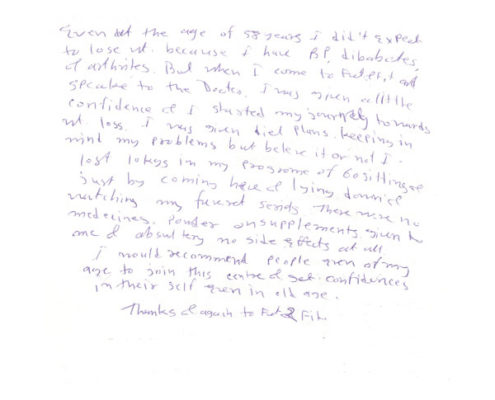 Even at the age of 58 years i did't expect
to lose wt. because i have BP, dibabates,
& arthrites. But when i come to Fat2Fit, & 
speake to the Doctor. I was given a little
confidence & I started my journey towards
wt. loss. I was given diet plans. keeping in
mind my problems but beleve it or not I
lost 10 kgs in my programe of 60 sittings
just by coming here & lying down &
watching my favret serials. There were no
medecines. Powder or supplements given to
me & absultery no side effects at all.
i would recommend people even of my
age to join this centre & get confidences
in their self even in old age.
Thanks & again to Fat 2 Fit.